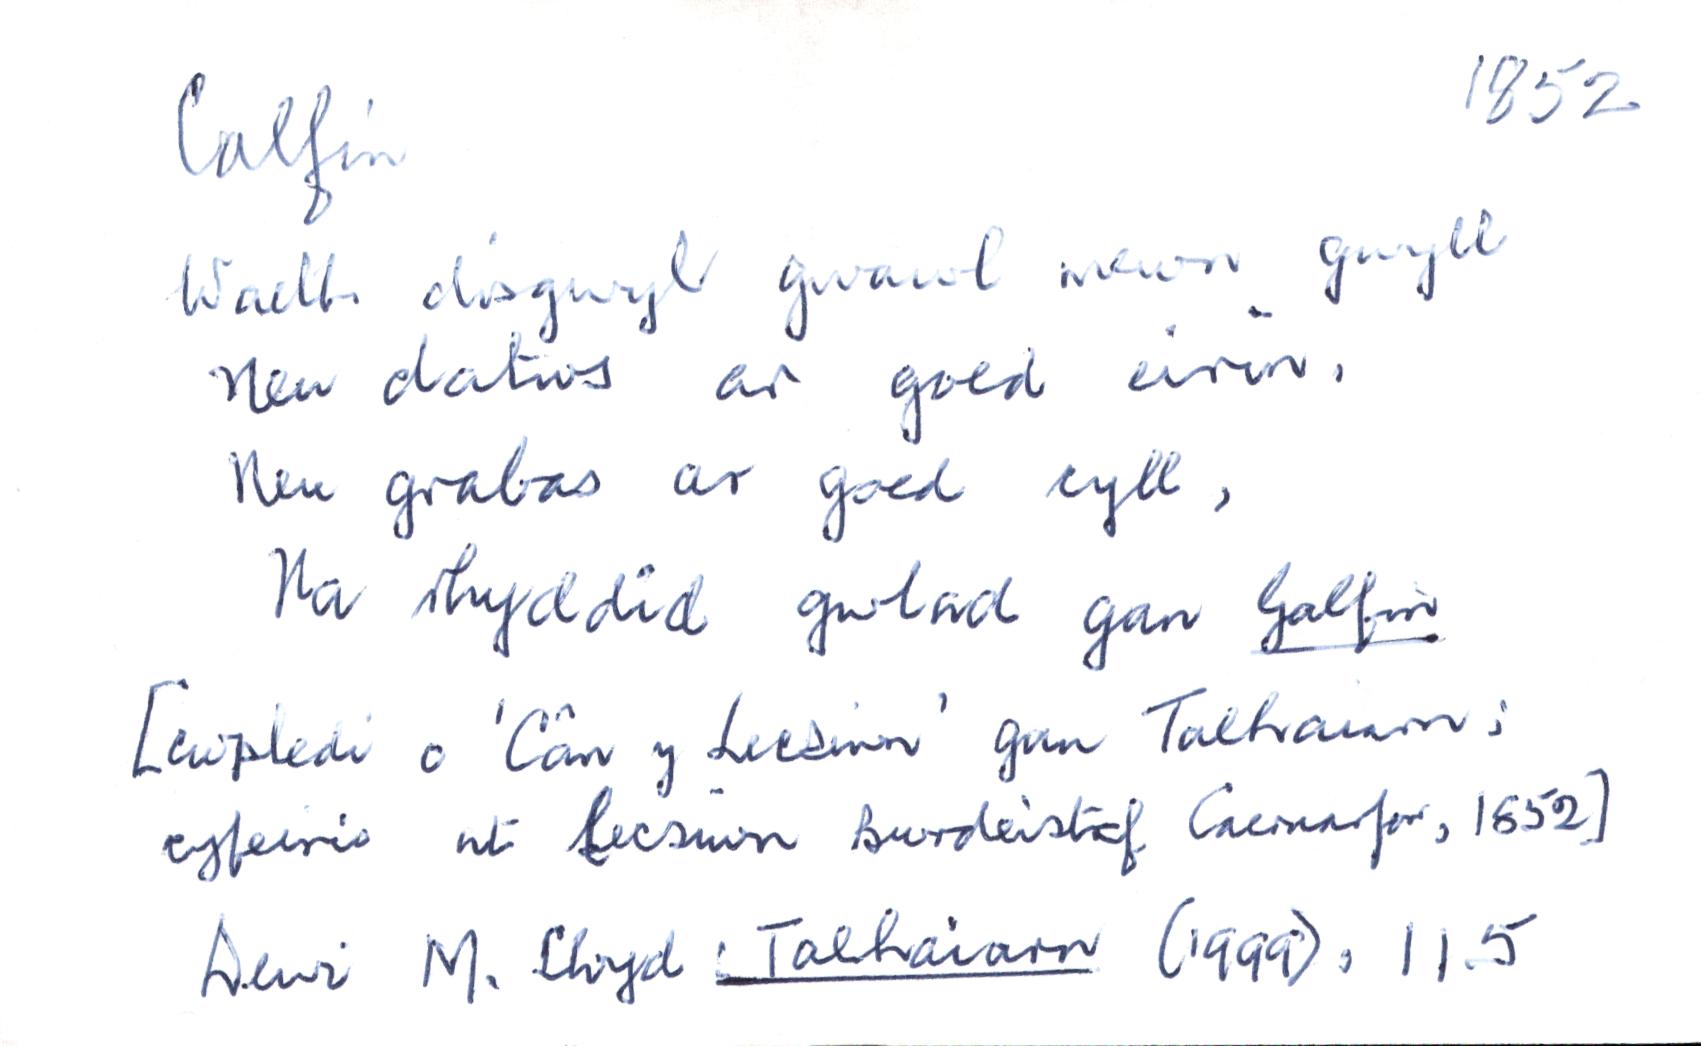 Calfin 1852
Waeth disgwyl gwawl mewn gwyll
Neu datws ar goed eirin,
Neu grabas ar goed cyll,
Na rhyddid gwlad gan Galfin
[cwpledi o 'Cân y Lecsiwn' gan Talhaiarn;
cyfeirio at lecsiwn Bwrdeistref Caernarfon, 1852]
Dewi M. Lloyd: Talhaiarn (1999), 115